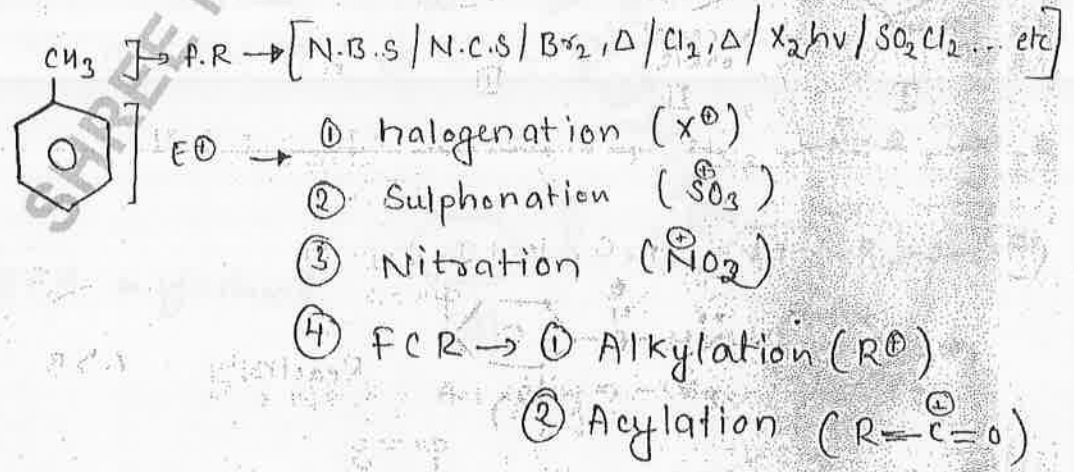 SHREE
CH3 ]→ f.R → [N.B.S / N.C.S / Br2, Δ / Cl2, Δ / X2 hv / SO2 Cl2 ... etc]
E⊕ → ① halogenation (X⊕)
② Sulphonation (S⊕O3)
③ Nitration (N⊕O2)
④ F C R → ① Alkylation (R⊕)
② Acylation (R–C⊕=O)